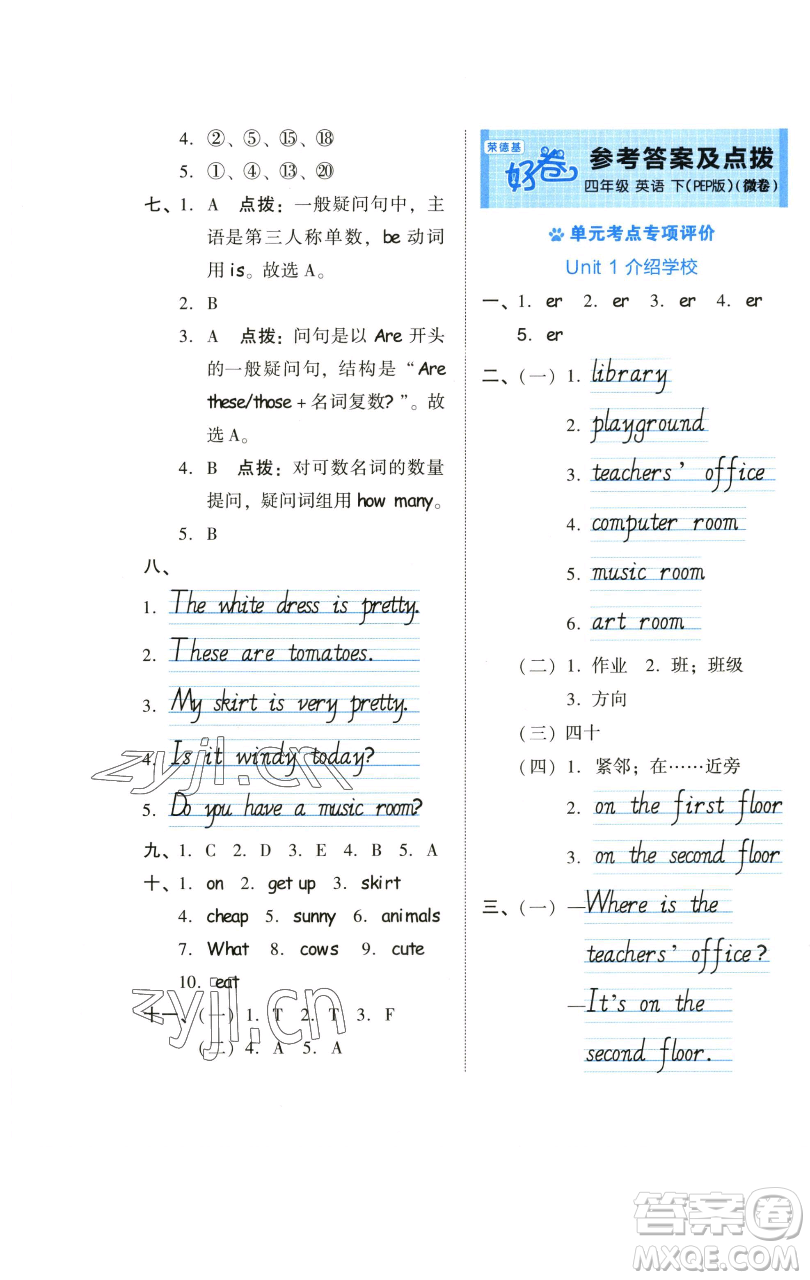 4. ②、⑤、⑮、⑱
5. ①、④、⑬、⑳
七、1. A 点拨：一般疑问句中，主
语是第三人称单数，be 动词
用 is。故选 A。
2. B
3. A 点拨：问句是以 Are 开头
的一般疑问句，结构是“Are
these/those + 名词复数？”。故
选 A。
4. B 点拨：对可数名词的数量
提问，疑问词组用 how many。
5. B
八、
1. The white dress is pretty.
2. These are tomatoes.
3. My skirt is very pretty.
4. Is it windy today?
5. Do you have a music room?
九、1. C 2. D 3. E 4. B 5. A
十、1. on 2. get up 3. skirt
4. cheap 5. sunny 6. animals
7. What 8. cows 9. cute
10. eat
十一、(一) 1. T 2. T 3. F
(二) 4. A 5. A
zyjl.cn
zyjl.cn
荣德基
好卷
参考答案及点拨
四年级 英语 下(PEP版)(微卷)
单元考点专项评价
Unit 1 介绍学校
一、1. er 2. er 3. er 4. er
5. er
二、(一) 1. library
2. playground
3. teachers’ office
4. computer room
5. music room
6. art room
(二) 1. 作业 2. 班；班级
3. 方向
(三) 四十
(四) 1. 紧邻；在……近旁
2. on the first floor
3. on the second floor
三、(一) —Where is the
teachers’ office?
—It’s on the
second floor.
答案圈
MXQE.COM